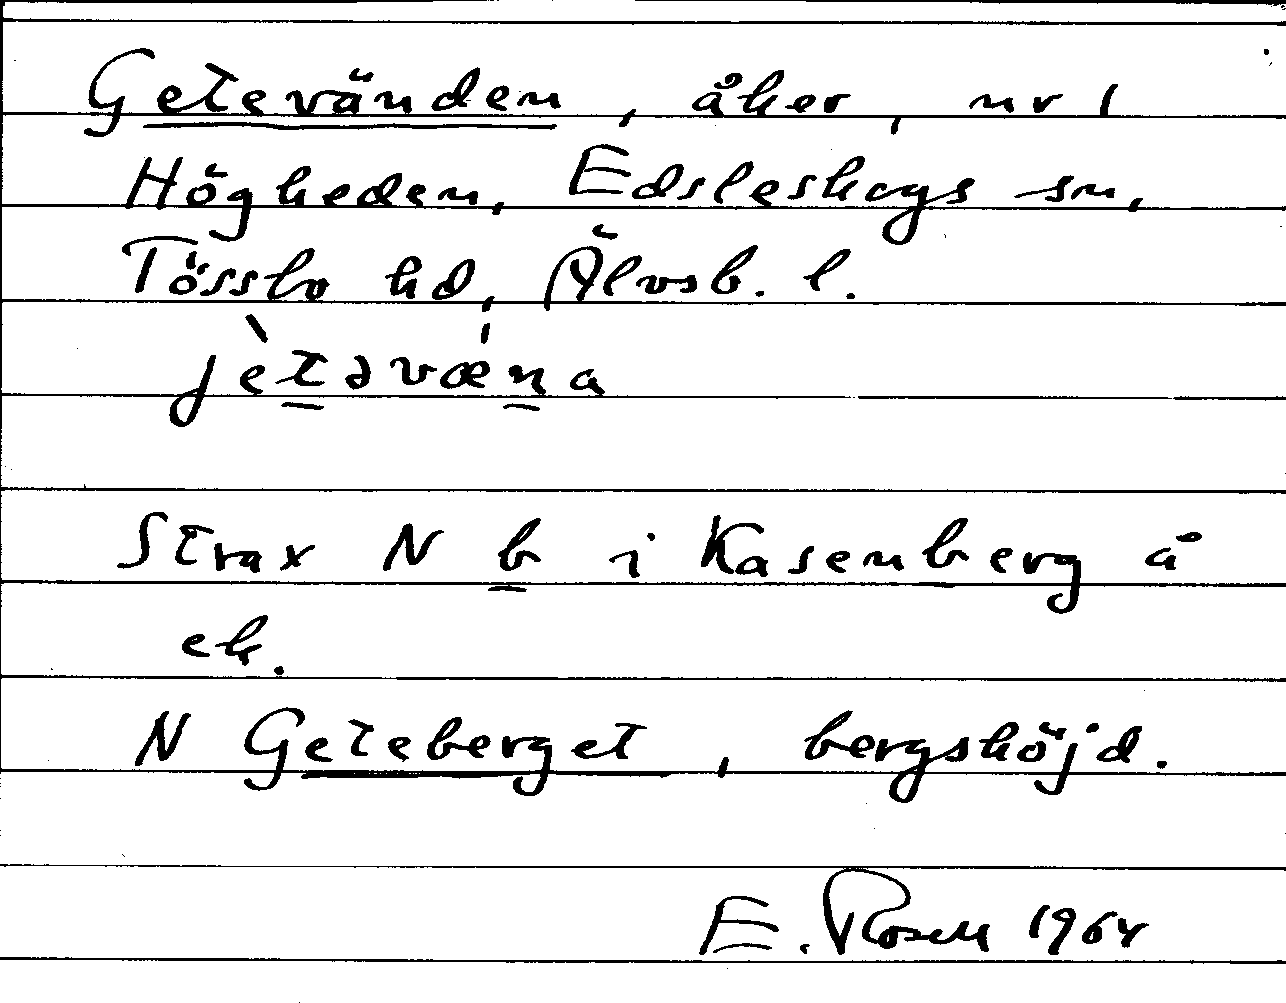 Getevänden, åker, nr 1
Högheden, Edsleskogs sn,
Tössbo hd, Älvsb. l.
jètəvæ´na
Strax N b i Kasenberg å
ek.
N Geteberget, bergshöjd.
E. Rosell 1964